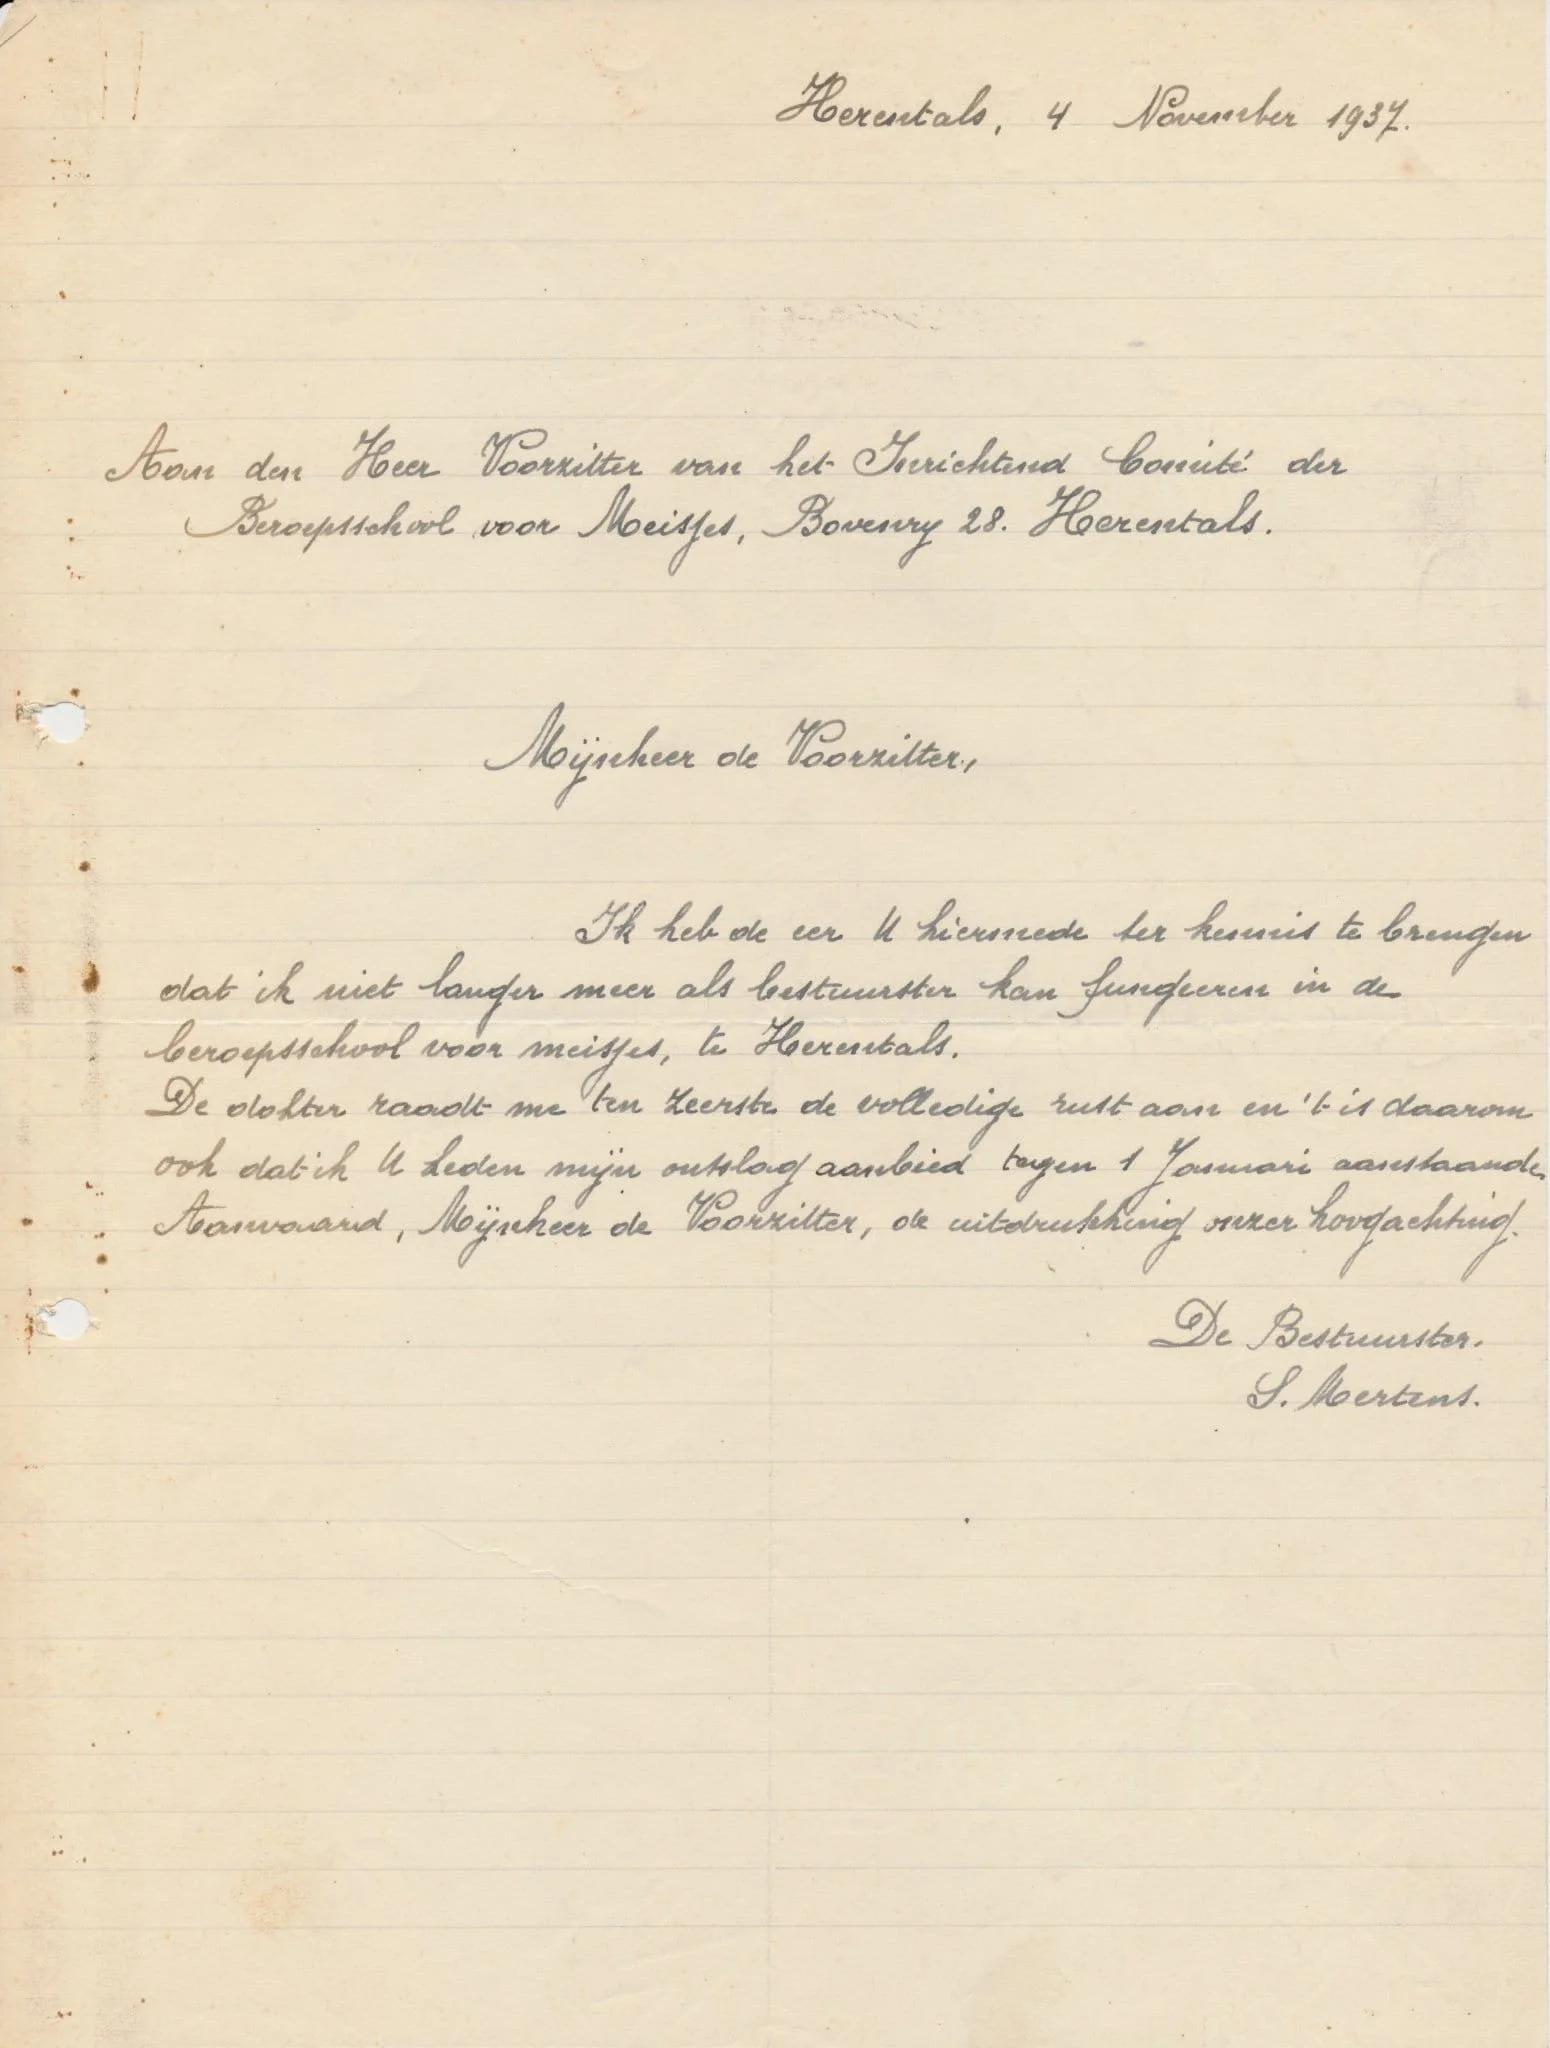 Herentals, 4 November 1937.
Aan den Heer Voorzitter van het Inrichtend Comité der
Beroepsschool voor Meisjes, Bovenry 28. Herentals.
Mijnheer de Voorzitter,
Ik heb de eer U hiermede ter kennis te brengen
dat ik niet langer meer als bestuurster kan fungeeren in de
beroepsschool voor meisjes, te Herentals.
De dokter raadt me ten zeerste de volledige rust aan en 't is daarom
ook dat ik U heden mijn ontslag aanbied tegen 1 Januari aanstaande.
Aanvaard, Mijnheer de Voorzitter, de uitdrukking onzer hoogachting.
De Bestuurster.
S. Mertens.